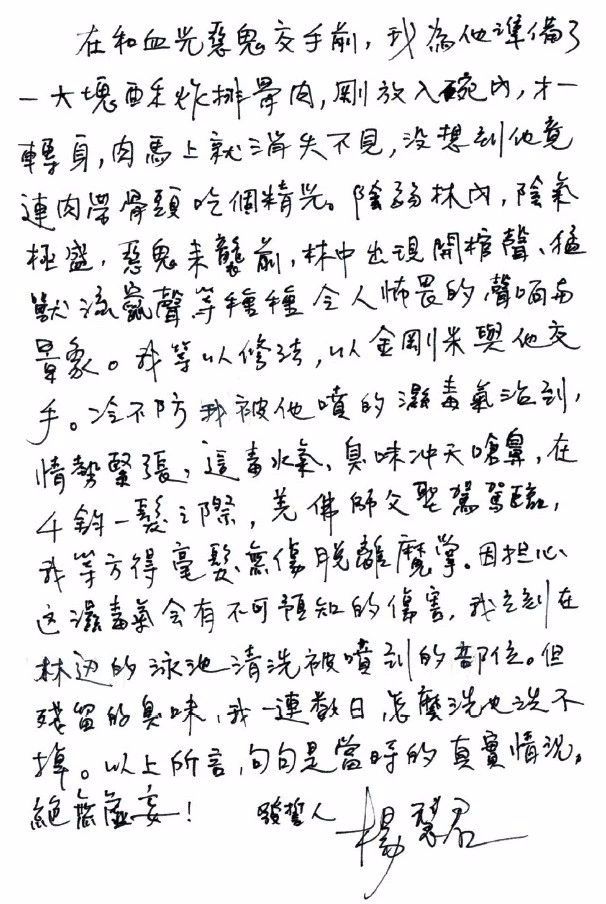 在和血光惡鬼交手前,我為他準備了
一大塊酥炸排骨肉,剛放入碗內,才一
轉身,肉馬上就消失不見,没想到他竟
連肉帶骨頭吃個精光。陰弱林內,陰氣
極盛,惡鬼来襲前,林中出現開棺聲、猛
獸流竄聲等種種令人怖畏的聲响与
景象。我等以修法,以金剛米與他交
手。冷不防我被他噴的濕毒氣沾到,
情勢緊張,這毒水氣,臭味冲天嗆鼻,在
千鈞一髮之際,羌佛師父聖駕駕臨,
我等方得毫髮無傷脱離魔掌。因担心
这濕毒氣会有不可預知的傷害,我立刻在
林边的泳池清洗被噴到的部位。但
殘留的臭味,我一連數日,怎麼洗也洗不
掉。以上所言,句句是當時的真實情況,
絕無虛妄!
發誓人 楊慧君